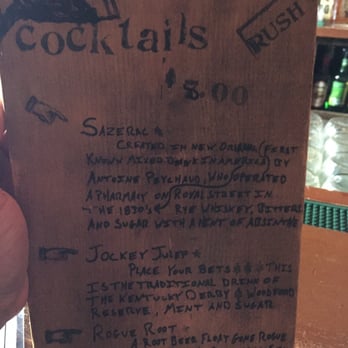 cocktails
RUSH
$8.00
SAZERAC
CREATED IN NEW ORLEANS (FIRST
KNOWN MIXED DRINK IN AMERICA) BY
ANTOINE PEYCHAUD, WHO OPERATED
A PHARMACY ON ROYAL STREET IN
THE 1830'S RYE WHISKEY, BITTERS
AND SUGAR WITH A HINT OF ABSINTHE
JOCKEY JULEP
PLACE YOUR BETS THIS
IS THE TRADITIONAL DRINK OF
THE KENTUCKY DERBY WOODFORD
RESERVE, MINT AND SUGAR
ROGUE ROOT
A ROOT BEER FLOAT GONE ROGUE